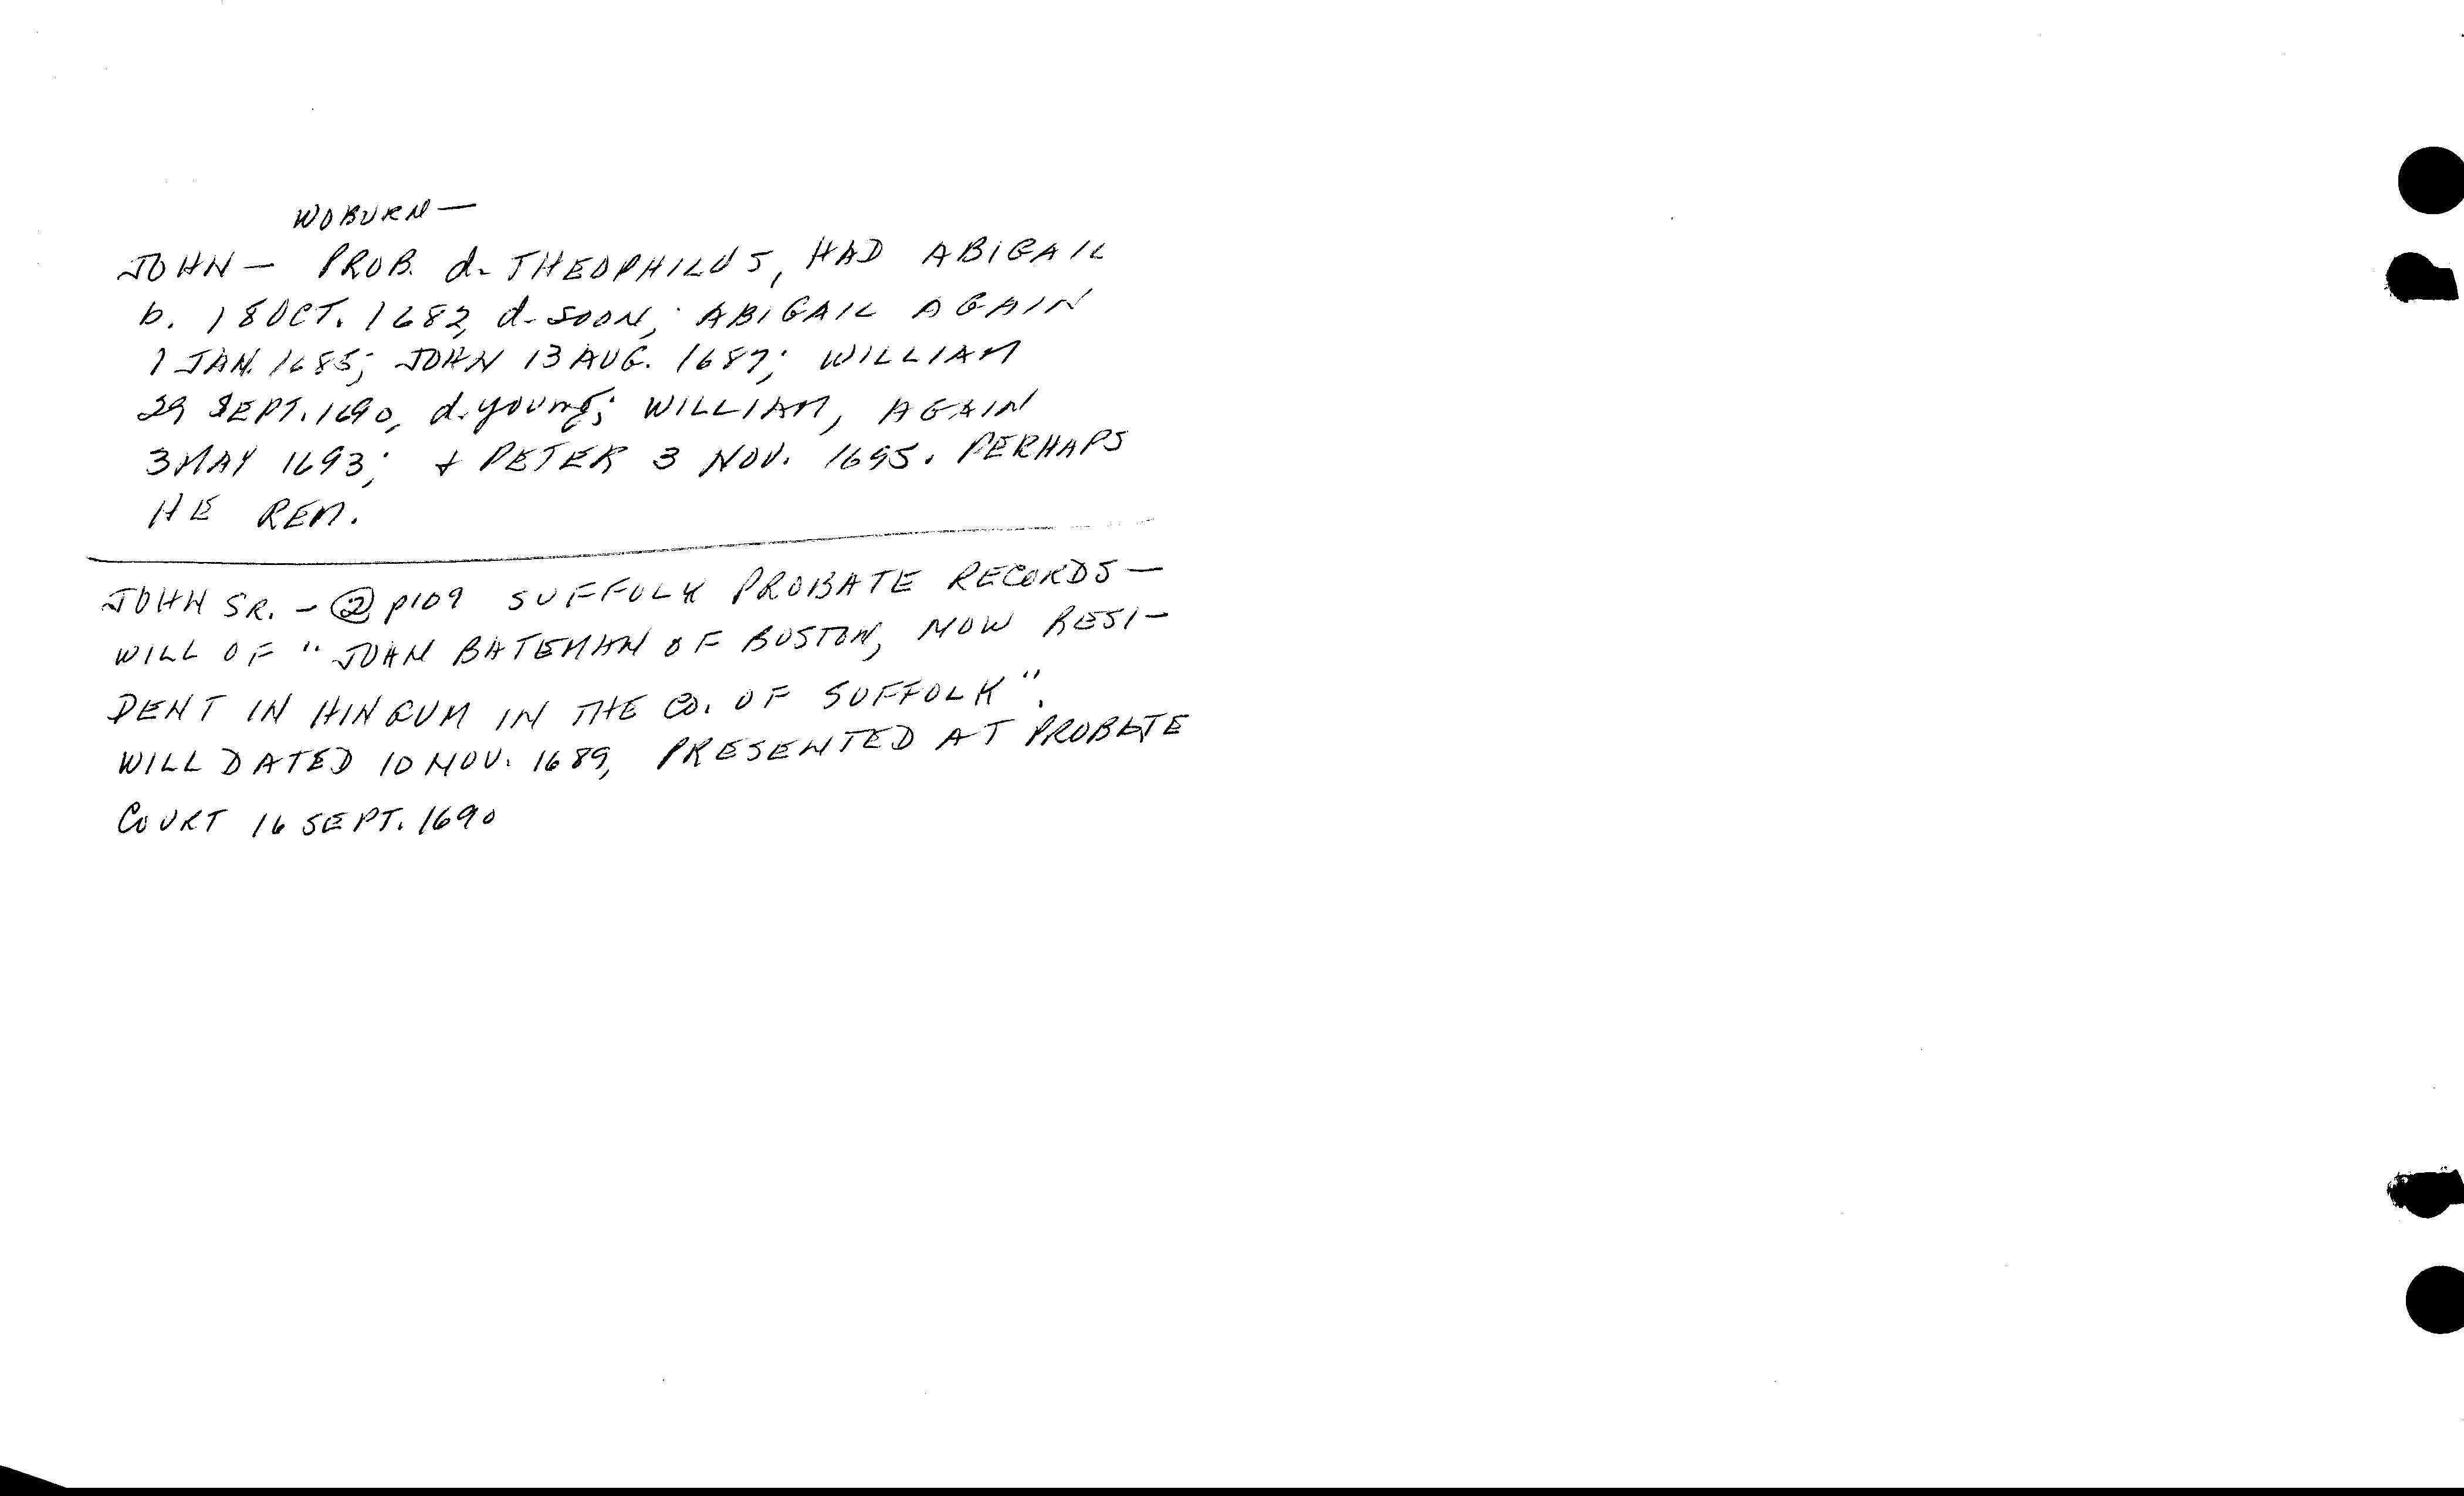 WOBURN —
JOHN — PROB. d. THEOPHILUS, HAD ABIGAIL
b. 18 OCT. 1682, d. SOON; ABIGAIL AGAIN
1 JAN. 1685; JOHN 13 AUG. 1687; WILLIAM
29 SEPT. 1690, d. young; WILLIAM, AGAIN
3 MAY 1693; + PETER 3 NOV. 1695. PERHAPS
HE REM.
JOHN SR. - ② p109 SUFFOLK PROBATE RECORDS —
WILL OF "JOHN BATEMAN OF BOSTON, NOW RESI-
DENT IN HINGUM IN THE CO. OF SUFFOLK".
WILL DATED 10 NOV. 1689, PRESENTED AT PROBATE
COURT 16 SEPT. 1690